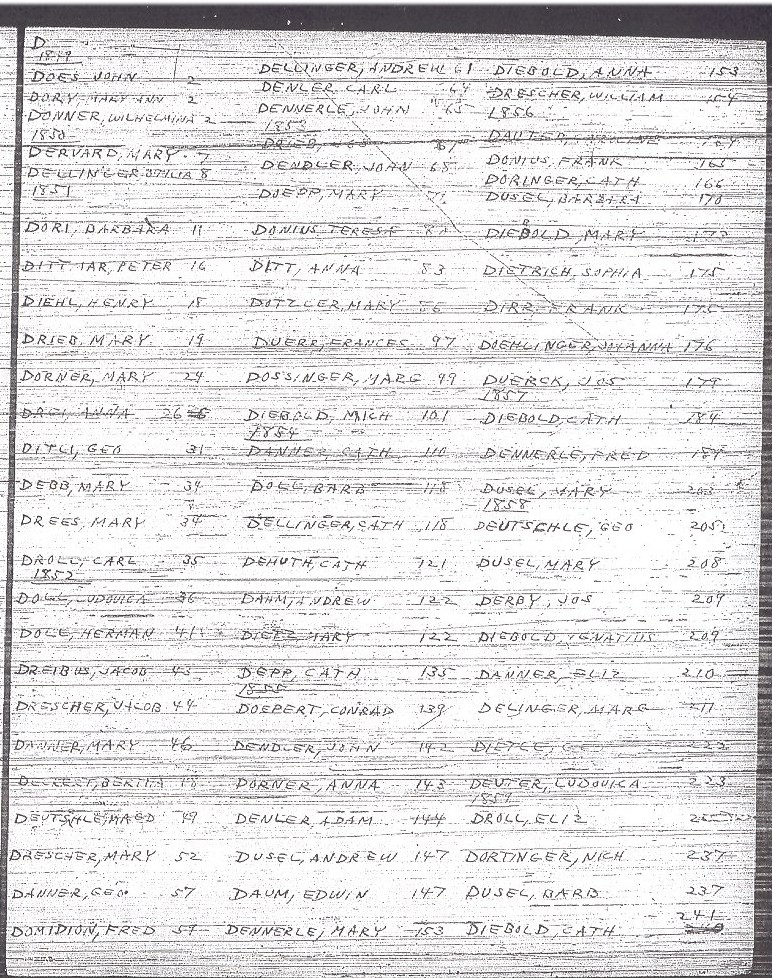 D
1849
DOES, JOHN 2
DORY, MARY ANN 2
DONNER, WILHELMINA 2
1850
DERVARD, MARY 7
DELLINGER, OTILIA 8
1851
DORI, BARBARA 11
DITTMAR, PETER 16
DIEHL, HENRY 18
DRIEB, MARY 19
DORNER, MARY 24
ANNA 26
DITLI, GEO 31
DEBB, MARY 34
DREES, MARY 34
DROLL, CARL 35
1852
DOLL, LUDOVICA 36
DOLL, HERMAN 41
DREIBUS, JACOB 43
DRESCHER, JACOB 44
DANNER, MARY 46
DECKERT, BERTHA 48
DEUTSCHLE, MAGD 49
DRESCHER, MARY 52
DANNER, GEO 57
DOMIDION, FRED 57
DELLINGER, ANDREW 61
DENLER, CARL 64
DENNERLE, JOHN 65
1853
DENDLER, JOHN 68
DOEPP, MARY
DONIUS, TERESA
DITT, ANNA 83
DOTZLER, MARY 86
DUERR, FRANCES 97
DOSSINGER, MARG 99
DIEBOLD, MICH 101
1854
DANNER, CATH 110
DOLL, BARB 118
DELLINGER, CATH 118
DEHUTH, CATH 121
DAHM, ANDREW 122
DIETZ, MARY 122
DEPP, CATH 135
1855
DOEPERT, CONRAD 139
DENDLER, JOHN 142
DORNER, ANNA 143
DENLER, ADAM 144
DUSEL, ANDREW 147
DAUM, EDWIN 147
DENNERLE, MARY 153
DIEBOLD, ANNA 153
DRESCHER, WILLIAM 154
1856
DAUTER, 164
DONIUS, FRANK 165
DORINGER, CATH 166
DUSEL, BARBARA 170
DIEBOLD, MARY 173
DIETRICH, SOPHIA 175
DIRR, FRANK 175
DOEHLINGER, JOHANNA 176
DUERCK, JOS 179
1857
DIEBOLD, CATH 184
DENNERLE, FRED 189
DUSEL, MARY 203
1858
DEUTSCHLE, GEO 205
DUSEL, MARY 208
DERBY, JOS 209
DIEBOLD, IGNATIUS 209
DANNER, ELIZ 210
DELINGER, MARG 211
DIETLE, GEO 222
DEUTER, LUDOVICA 223
1859
DROLL, ELIZ
DORTINGER, NICH 237
DUSEL, BARB 237
DIEBOLD, CATH 241